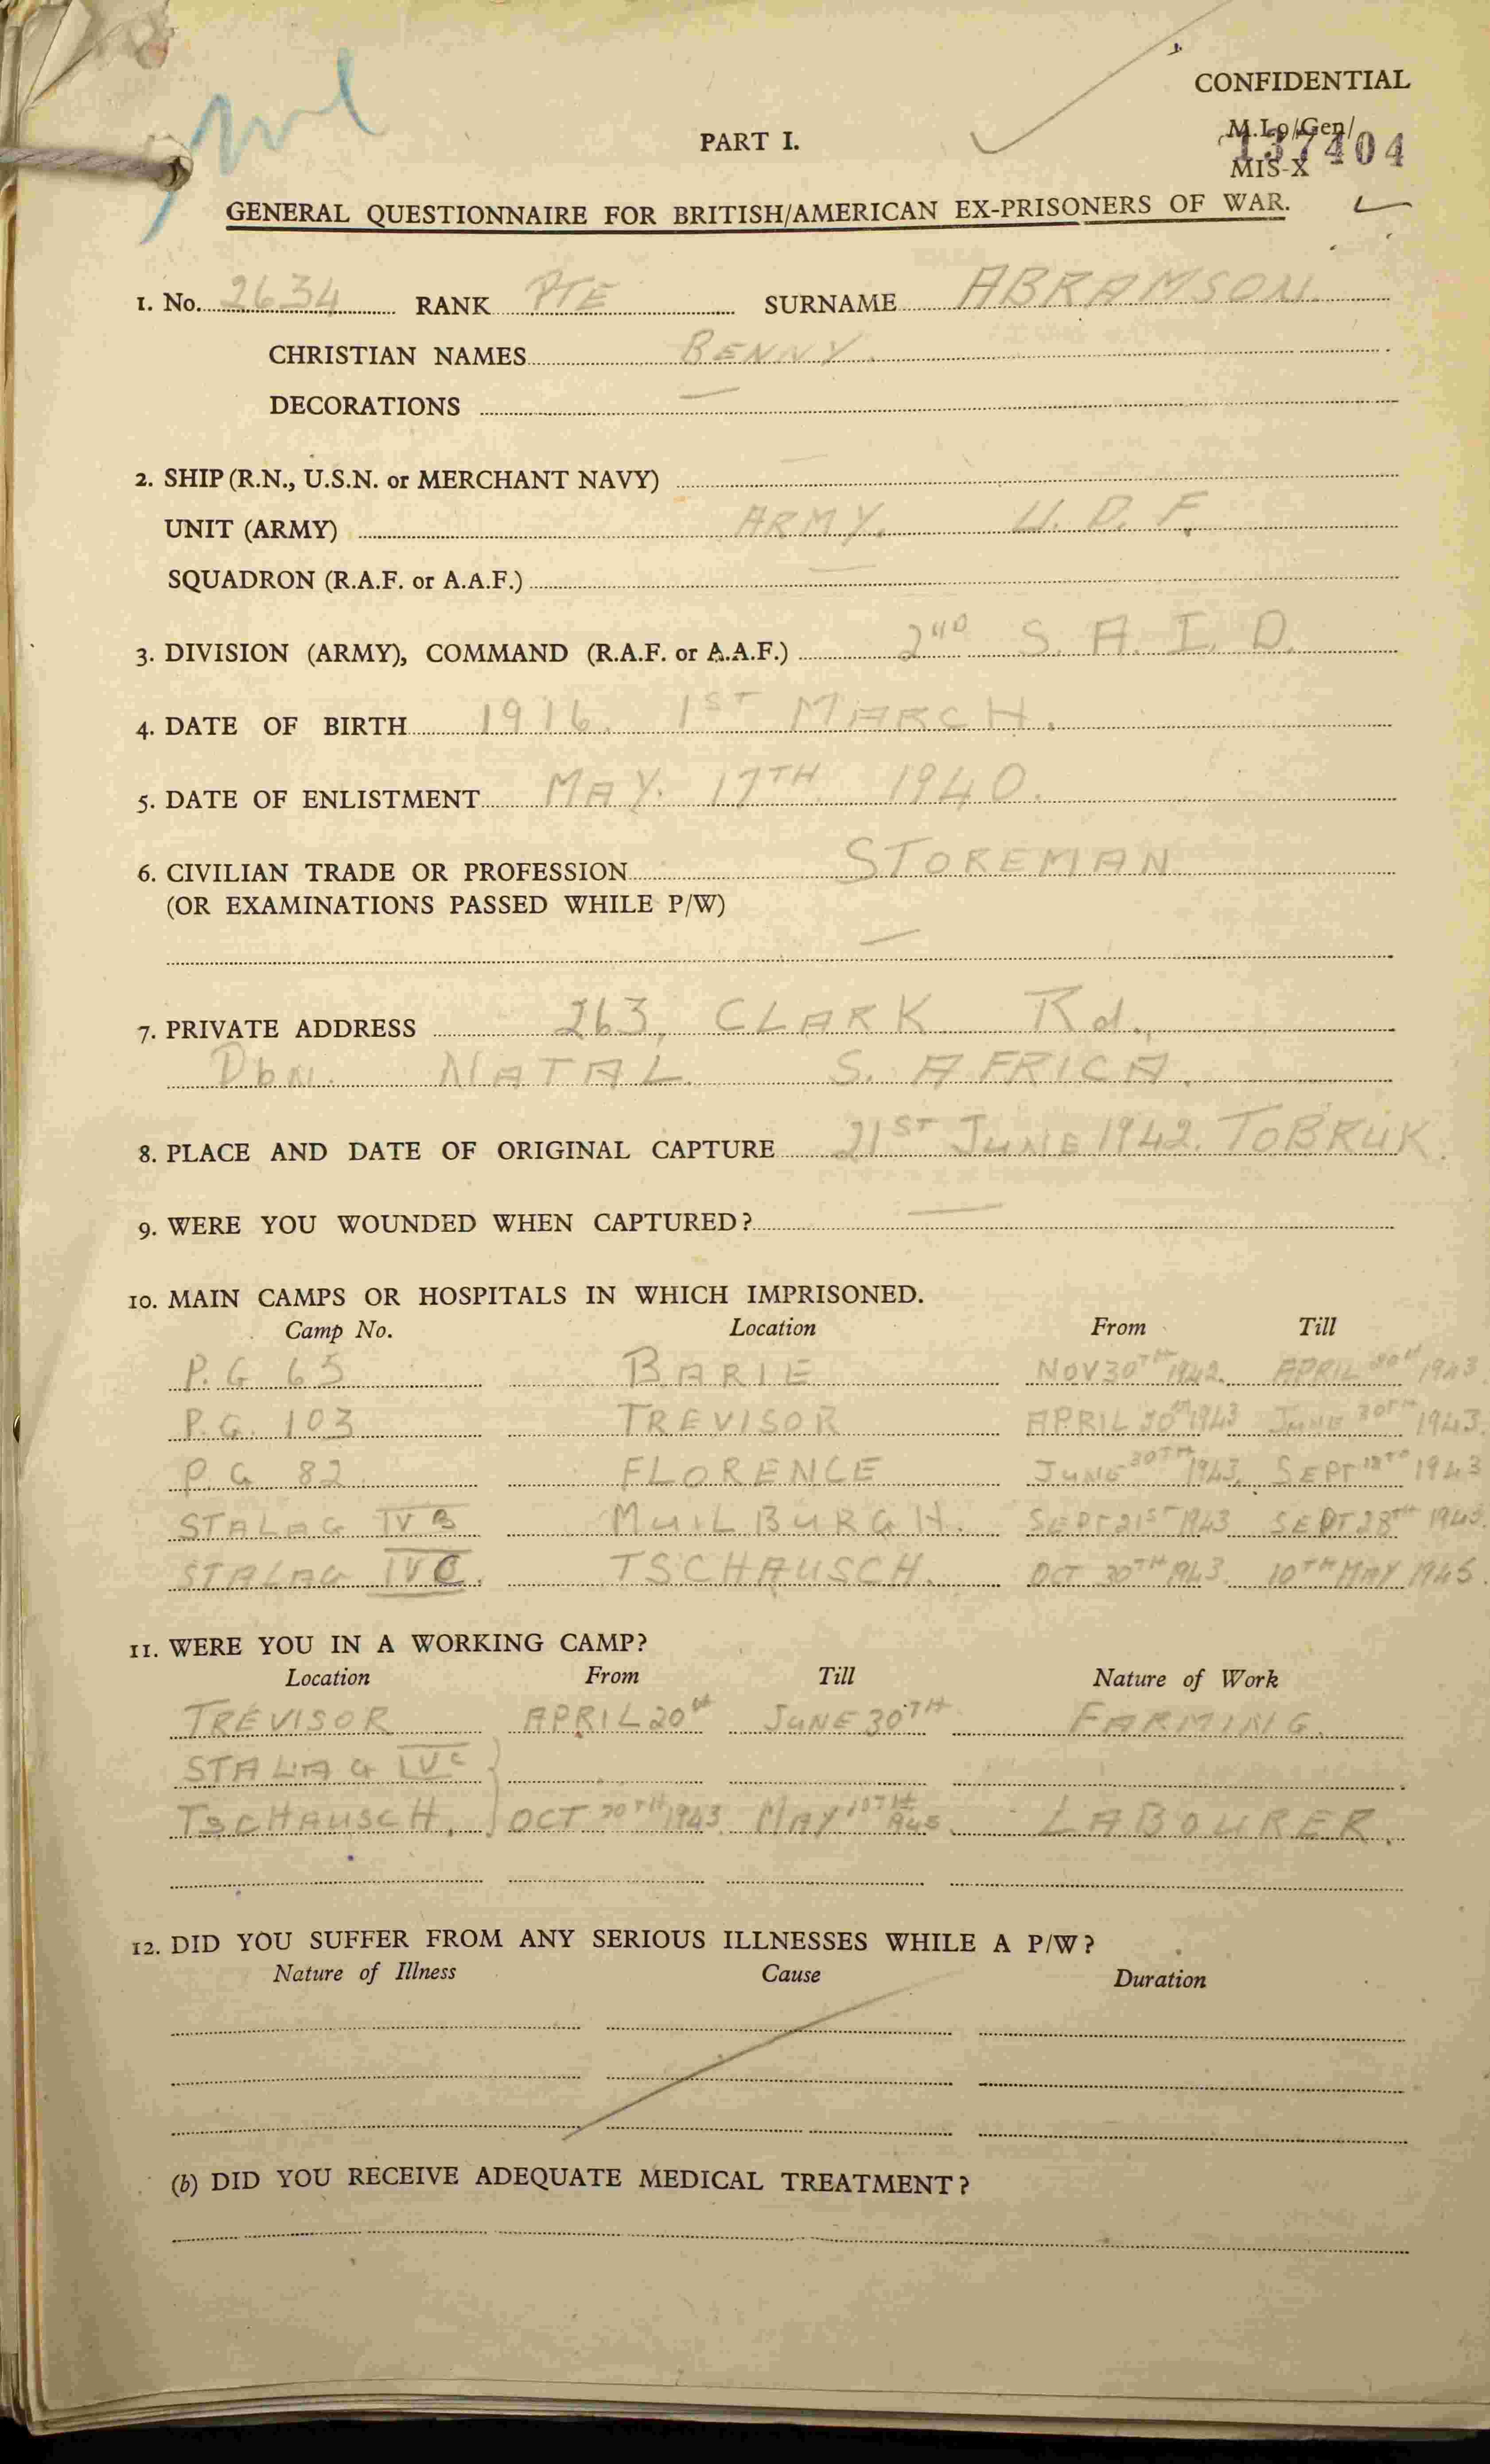 CONFIDENTIAL
M.I.9/Gen/
MIS-X 137404
PART I.
GENERAL QUESTIONNAIRE FOR BRITISH/AMERICAN EX-PRISONERS OF WAR.
1. No. 2634 RANK PTE SURNAME ABRAMSON.
CHRISTIAN NAMES BENNY.
DECORATIONS —
2. SHIP (R.N., U.S.N. or MERCHANT NAVY) —
UNIT (ARMY) ARMY. U.D.F.
SQUADRON (R.A.F. or A.A.F.) —
3. DIVISION (ARMY), COMMAND (R.A.F. or A.A.F.) 2ND S.A.I.D.
4. DATE OF BIRTH 1916. 1ST MARCH.
5. DATE OF ENLISTMENT MAY. 17TH 1940.
6. CIVILIAN TRADE OR PROFESSION STOREMAN
(OR EXAMINATIONS PASSED WHILE P/W)
—
7. PRIVATE ADDRESS 263, CLARK Rd.,
Dbn. NATAL. S. AFRICA.
8. PLACE AND DATE OF ORIGINAL CAPTURE 21ST JUNE 1942. TOBRUK.
9. WERE YOU WOUNDED WHEN CAPTURED? —
10. MAIN CAMPS OR HOSPITALS IN WHICH IMPRISONED.
Camp No. Location From Till
P.G 65 BARIE NOV 30TH 1942. APRIL 1943.
P.G. 103 TREVISOR APRIL 1943 JUNE 30TH 1943.
P.G 82. FLORENCE JUNE 30TH 1943. SEPT 1943
STALAG IV B MUILBURGH. SEPT 21ST 1943 SEPT 28TH 1943.
STALAG IV C. TSCHAUSCH. OCT 30TH 1943. 10TH MAY 1945.
11. WERE YOU IN A WORKING CAMP?
Location From Till Nature of Work
TREVISOR APRIL 20TH JUNE 30TH FARMING.
STALAG IVC
TSCHAUSCH. OCT 1943. MAY 10TH 1945. LABOURER.
12. DID YOU SUFFER FROM ANY SERIOUS ILLNESSES WHILE A P/W?
Nature of Illness Cause Duration
(b) DID YOU RECEIVE ADEQUATE MEDICAL TREATMENT?